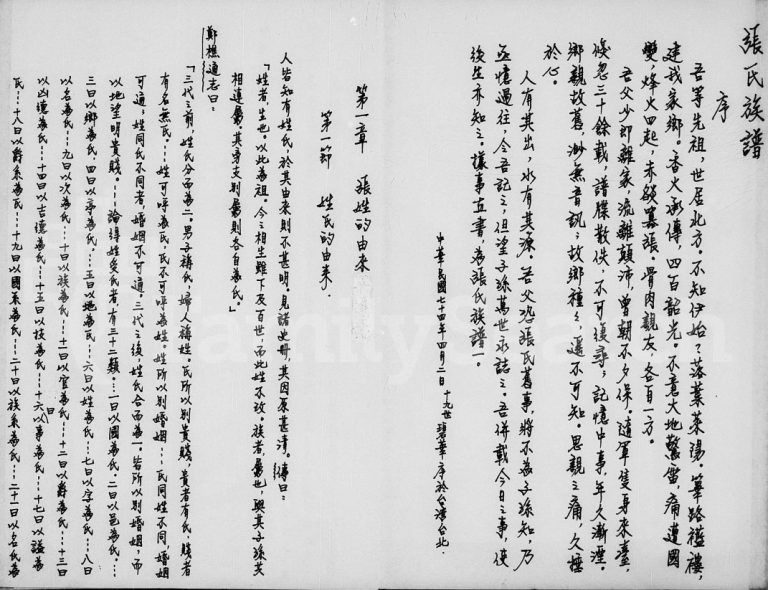 張氏族譜
序
吾等先祖，世居北方。不知伊始？落葉萊陽。篳路襤褸，
建我家鄉。香火承傳，四百韶光。不意大地驚雷，痛遭國
變，烽火四起，赤燄囂張。骨肉親友，各自一方。
吾父少即離家，流離顛沛，曾朝不夕保。隨軍隻身來臺，
倏忽三十餘載，譜牒散佚，不可復尋；記憶中事，年久漸湮。
鄉親故舊，渺無音訊；故鄉種々，遥不可知。思親之痛，久埋
於心。
人有其出，水有其源。若父況張氏舊事，將不為子孫知。乃
亟憶過往，令吾記之，但望子孫萬世永誌之。吾併載今日之事，使
後生亦知之。據事直書，為張氏族譜一。
中華民國七十四年四月二日 十九世 碧華 序於台灣台北.
第一章 張姓的由來
第一節 姓氏的由來.
人皆知有姓氏，於其由來則不甚明。見諸史冊，其因原甚清。傳曰：
「姓者，生也。以此為祖。令之相生，雖下及百世，而此姓不改。族者，屬也，與其子孫共
相連屬。其旁支別屬，則各自為氏。」
鄭樵通志曰：
「三代之前，姓氏分而為二，男子稱氏，婦人稱姓，氏所以別貴賤，貴者有氏，賤者
有名無氏。…姓可呼為氏，氏不可呼為姓，姓所以別婚姻…氏同姓不同，婚姻
可通，姓同氏不同者，婚姻不可通。三代之後，姓氏合而為一。皆所以別婚姻，而
以地望明貴賤。…論得姓受氏者，有三十二類。…一曰以國為氏。二曰以邑為氏。…
三曰以鄉為氏。四曰以亭為氏…五曰以地為氏…六曰以姓為氏…七曰以字為氏…八曰
以名為氏…九曰以次為氏…十曰以族為氏…十一曰以官為氏…十二曰以爵為氏…十三曰
以凶德為氏…十四曰以吉德為氏…十五曰以技為氏…十六曰以事為氏…十七曰以謚為
氏…十八曰以爵系為氏…十九曰以國系為氏…二十曰以族系為氏…二十一曰以名氏為
FamilySearch